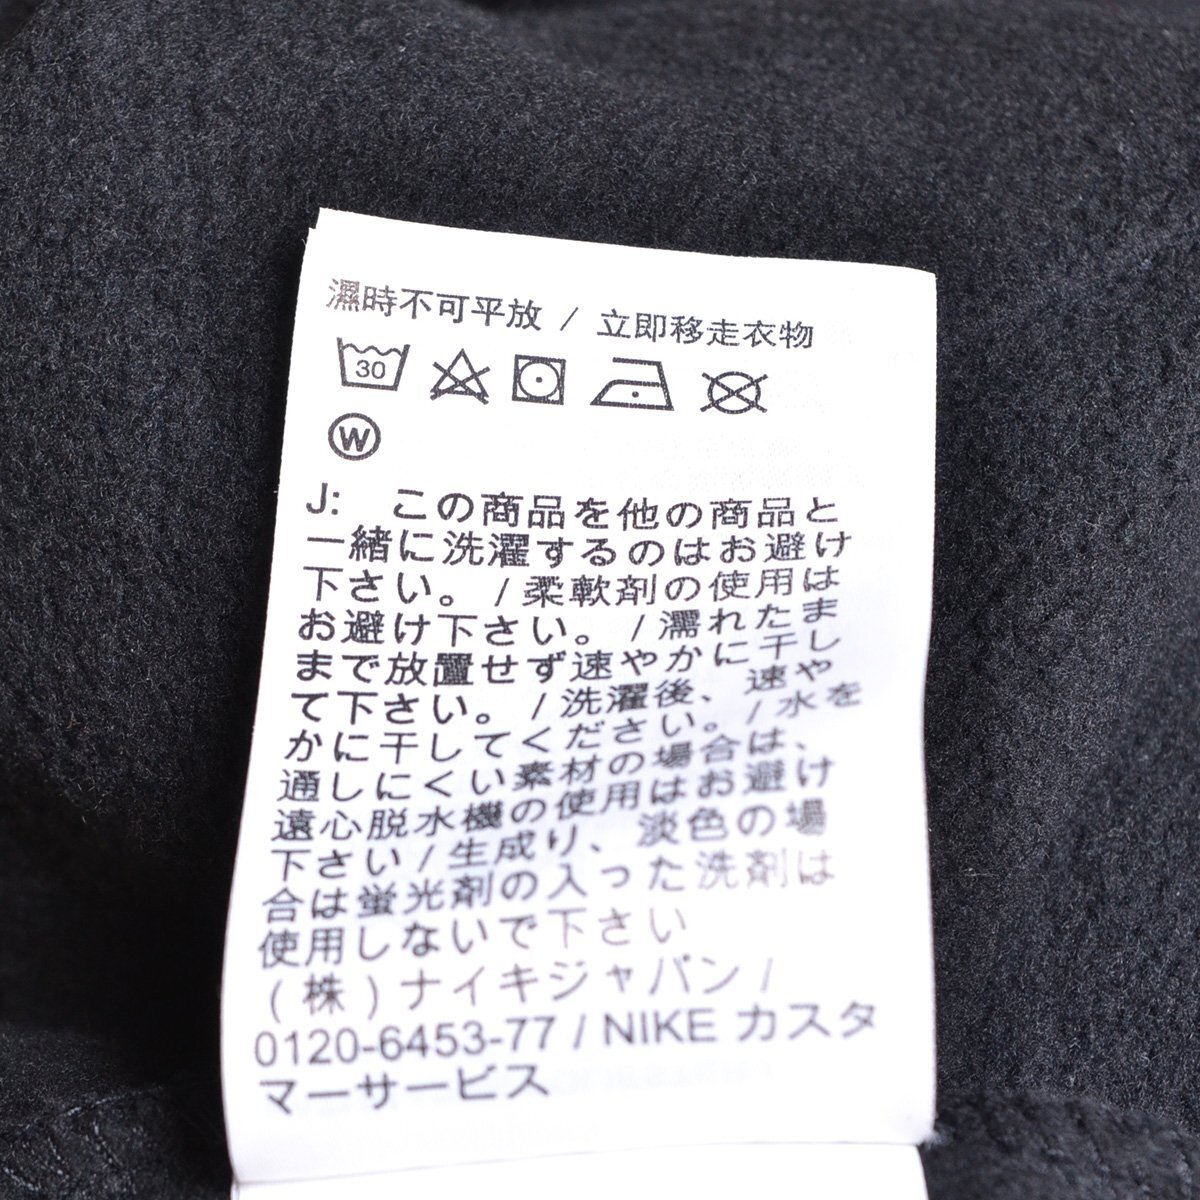 濕時不可平放 / 立即移走衣物
30
W
J: この商品を他の商品と
一緒に洗濯するのはお避け
下さい。/ 柔軟剤の使用は
お避け下さい。/ 濡れたま
まで放置せず速やかに干し
て下さい。/ 洗濯後、速や
かに干してください。/ 水を
通しにくい素材の場合は、
遠心脱水機の使用はお避け
下さい / 生成り、淡色の場
合は蛍光剤の入った洗剤は
使用しないで下さい
(株) ナイキジャパン /
0120-6453-77 / NIKE カスタ
マーサービス